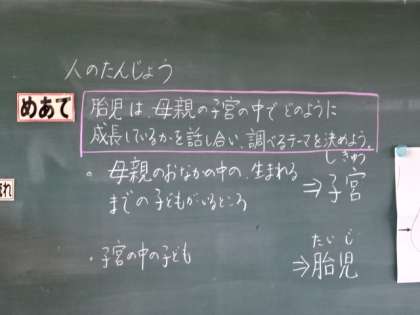 人のたんじょう
めあて
胎児は、母親の子宮の中でどのように
成長しているかを話し合い、調べるテーマを決めよう。
・母親のおなかの中の、生まれる
までの子どもがいるところ
しきゅう
⇒子宮
・子宮の中の子ども
たいじ
⇒胎児